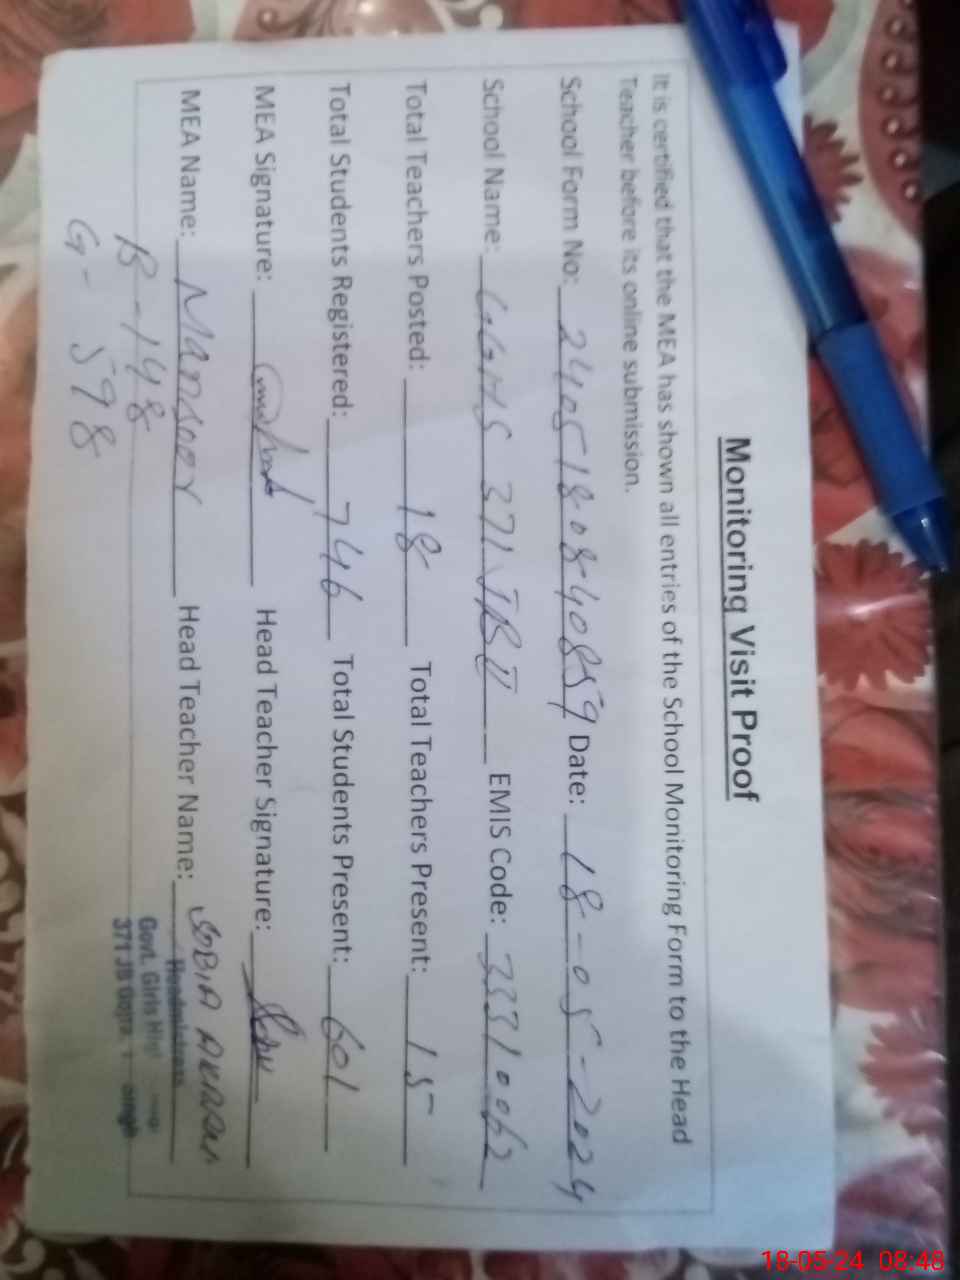 Monitoring Visit Proof
It is certified that the MEA has shown all entries of the School Monitoring Form to the Head
Teacher before its online submission.
School Form No: 240518084089 Date: 18-05-2024
School Name: GGHS 371 JB II EMIS Code: 3331062
Total Teachers Posted: 18 Total Teachers Present: 15
Total Students Registered: 746 Total Students Present: 601
MEA Signature: Head Teacher Signature:
MEA Name: Mansoor Head Teacher Name: SOBIA AKRAM
B-148
G-598
Headmistress
Govt. Girls High
371 JB Gojra
18-05-24 08:48